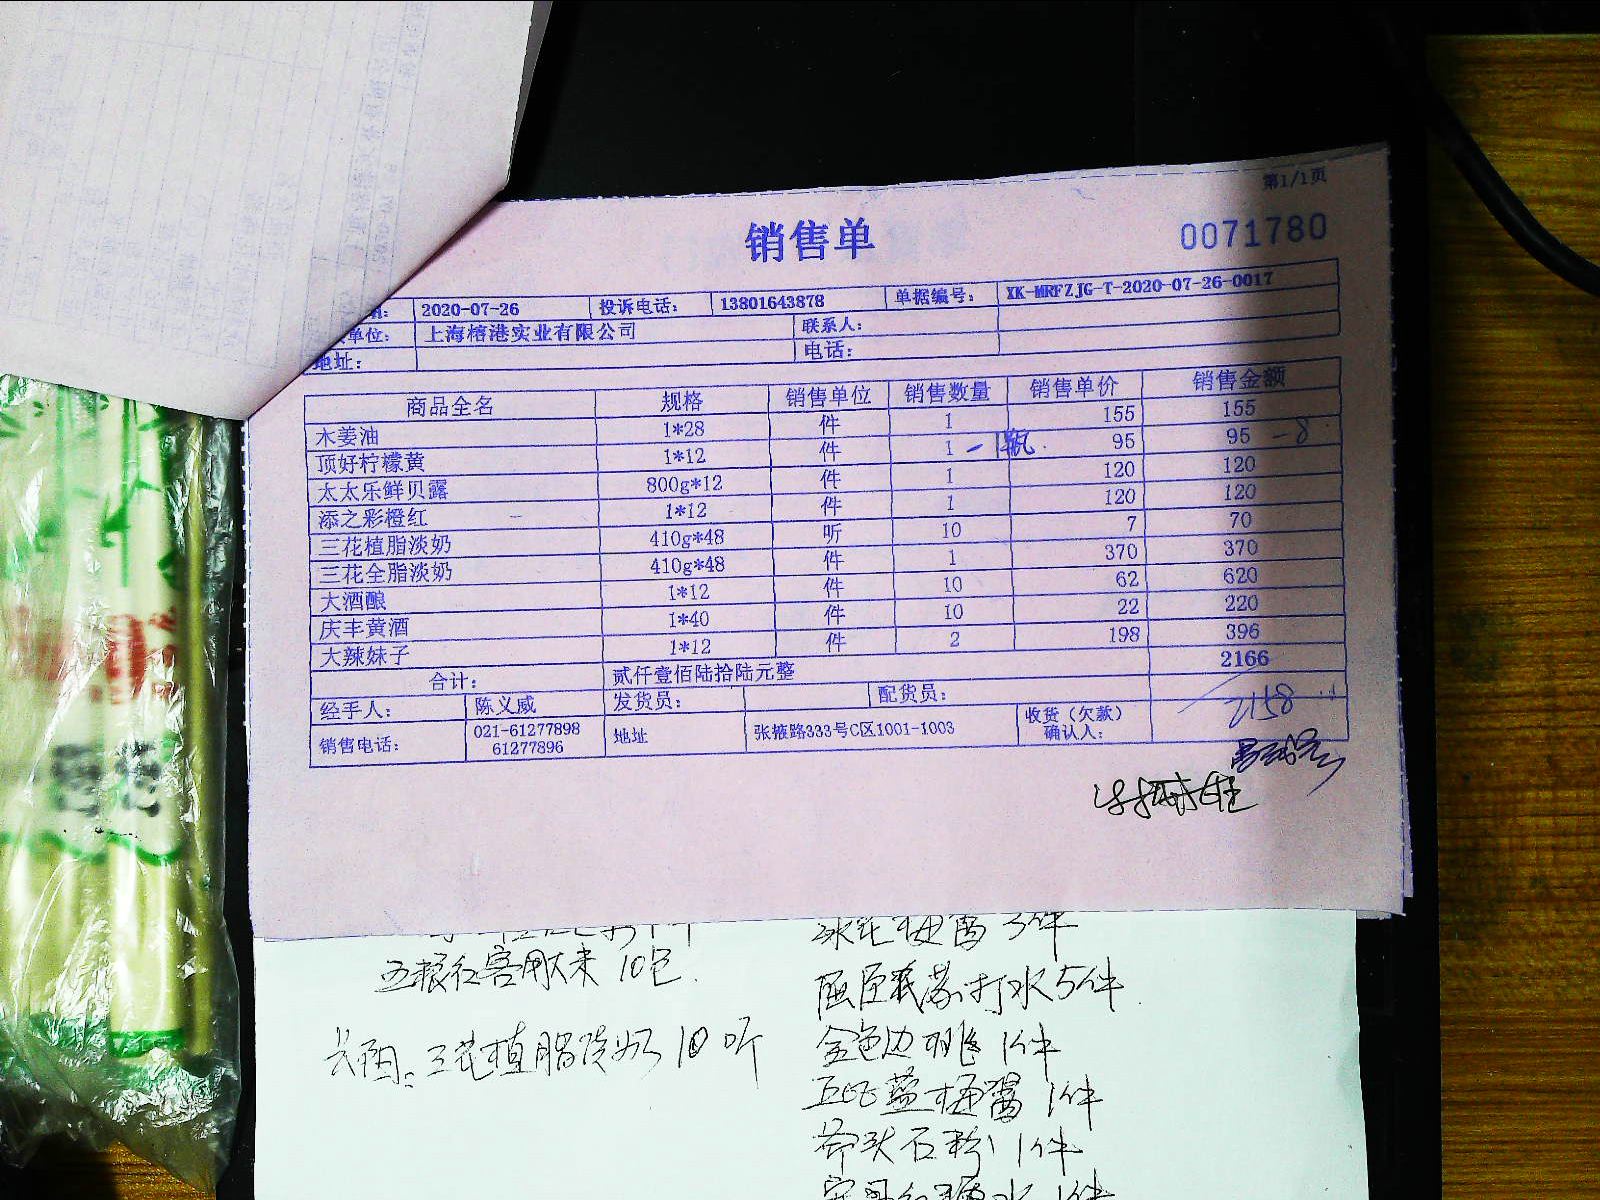 第1/1页
销售单
0071780
2020-07-26 投诉电话: 13801643878 单据编号: YK-MRFZJG-T-2020-07-26-0017
单位: 上海榕港实业有限公司 联系人:
地址: 电话:
商品全名 规格 销售单位 销售数量 销售单价 销售金额
木姜油 1*28 件 1 155 155
顶好柠檬黄 1*12 件 1 -1瓶. 95 95 -8
太太乐鲜贝露 800g*12 件 1 120 120
添之彩橙红 1*12 件 1 120 120
三花植脂淡奶 410g*48 听 10 7 70
三花全脂淡奶 410g*48 件 1 370 370
大酒酿 1*12 件 10 62 620
庆丰黄酒 1*40 件 10 22 220
大辣妹子 1*12 件 2 198 396
合计: 贰仟壹佰陆拾陆元整 2166
经手人: 陈义威 发货员: 配货员:
2158
销售电话: 021-61277898 61277896 地址 张掖路333号C区1001-1003 收货(欠款)确认人:
冰花梅酱 3件
五粮红客用大米 10包.
屈臣氏苏打水5件.
三花植脂淡奶 10听
金色边桃 1件
蓝梅酱 1件
斧头石粉 1件
1件